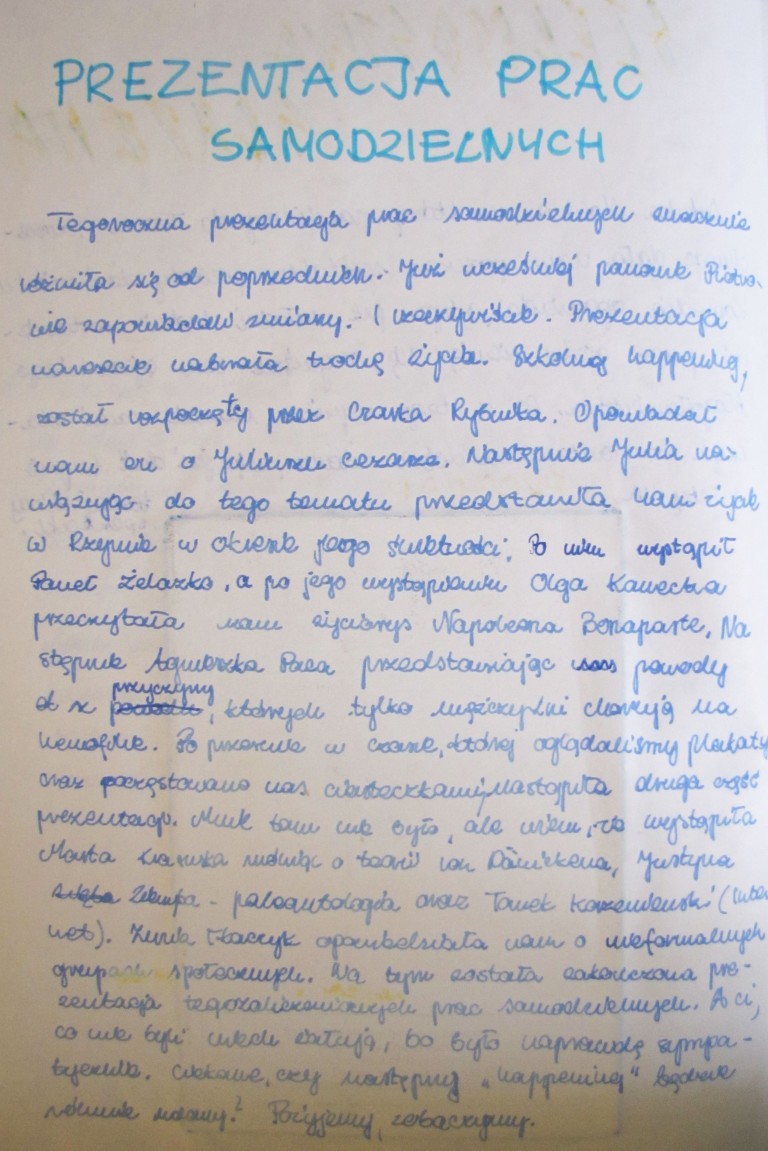 PREZENTACJA PRAC
SAMODZIELNYCH
Tegoroczna prezentacja prac samodzielnych znacznie
różniła się od poprzednich. Już wcześniej panowie Piotro-
wie zapowiadali zmiany. I rzeczywiście. Prezentacja
nareszcie nabrała trochę życia. Szkolny happening,
został rozpoczęty przez Czarka Rybnika. Opowiadał
nam on o Juliuszu Cezarze. Następnie Julia na-
wiązując do tego tematu przedstawiła nam
w Rzymie w okresie jego świetności; Po nim wystąpił
Paweł Żelazko, a po jego wystąpieniu Olga Kawecka
przeczytała nam życiorys Napoleona Bonaparte. Na
stępnie Agnieszka Paca przedstawiając powody
przyczyny
, których tylko mężczyźni chorują na
hemofilie. Po przerwie w czasie, której oglądaliśmy plakaty
oraz poczęstowano nas ciasteczkami, nastąpiła druga część
prezentacji. Mnie tam nie było, ale wiem, że wystąpiła
Marta mówiąc o teorii von Dänikena, Justyna
- paleontologia oraz Tomek (Inter
net). Zuzia Tkaczyk opowiedziała nam o nieformalnych
grupach społecznych. Na tym została zakończona pre-
zentacja prac samodzielnych. A ci,
co nie byli niech żałują, bo było naprawdę sympa-
tycznie. Ciekawe, czy następny „happening" będzie
równie udany? Pożyjemy, zobaczymy.